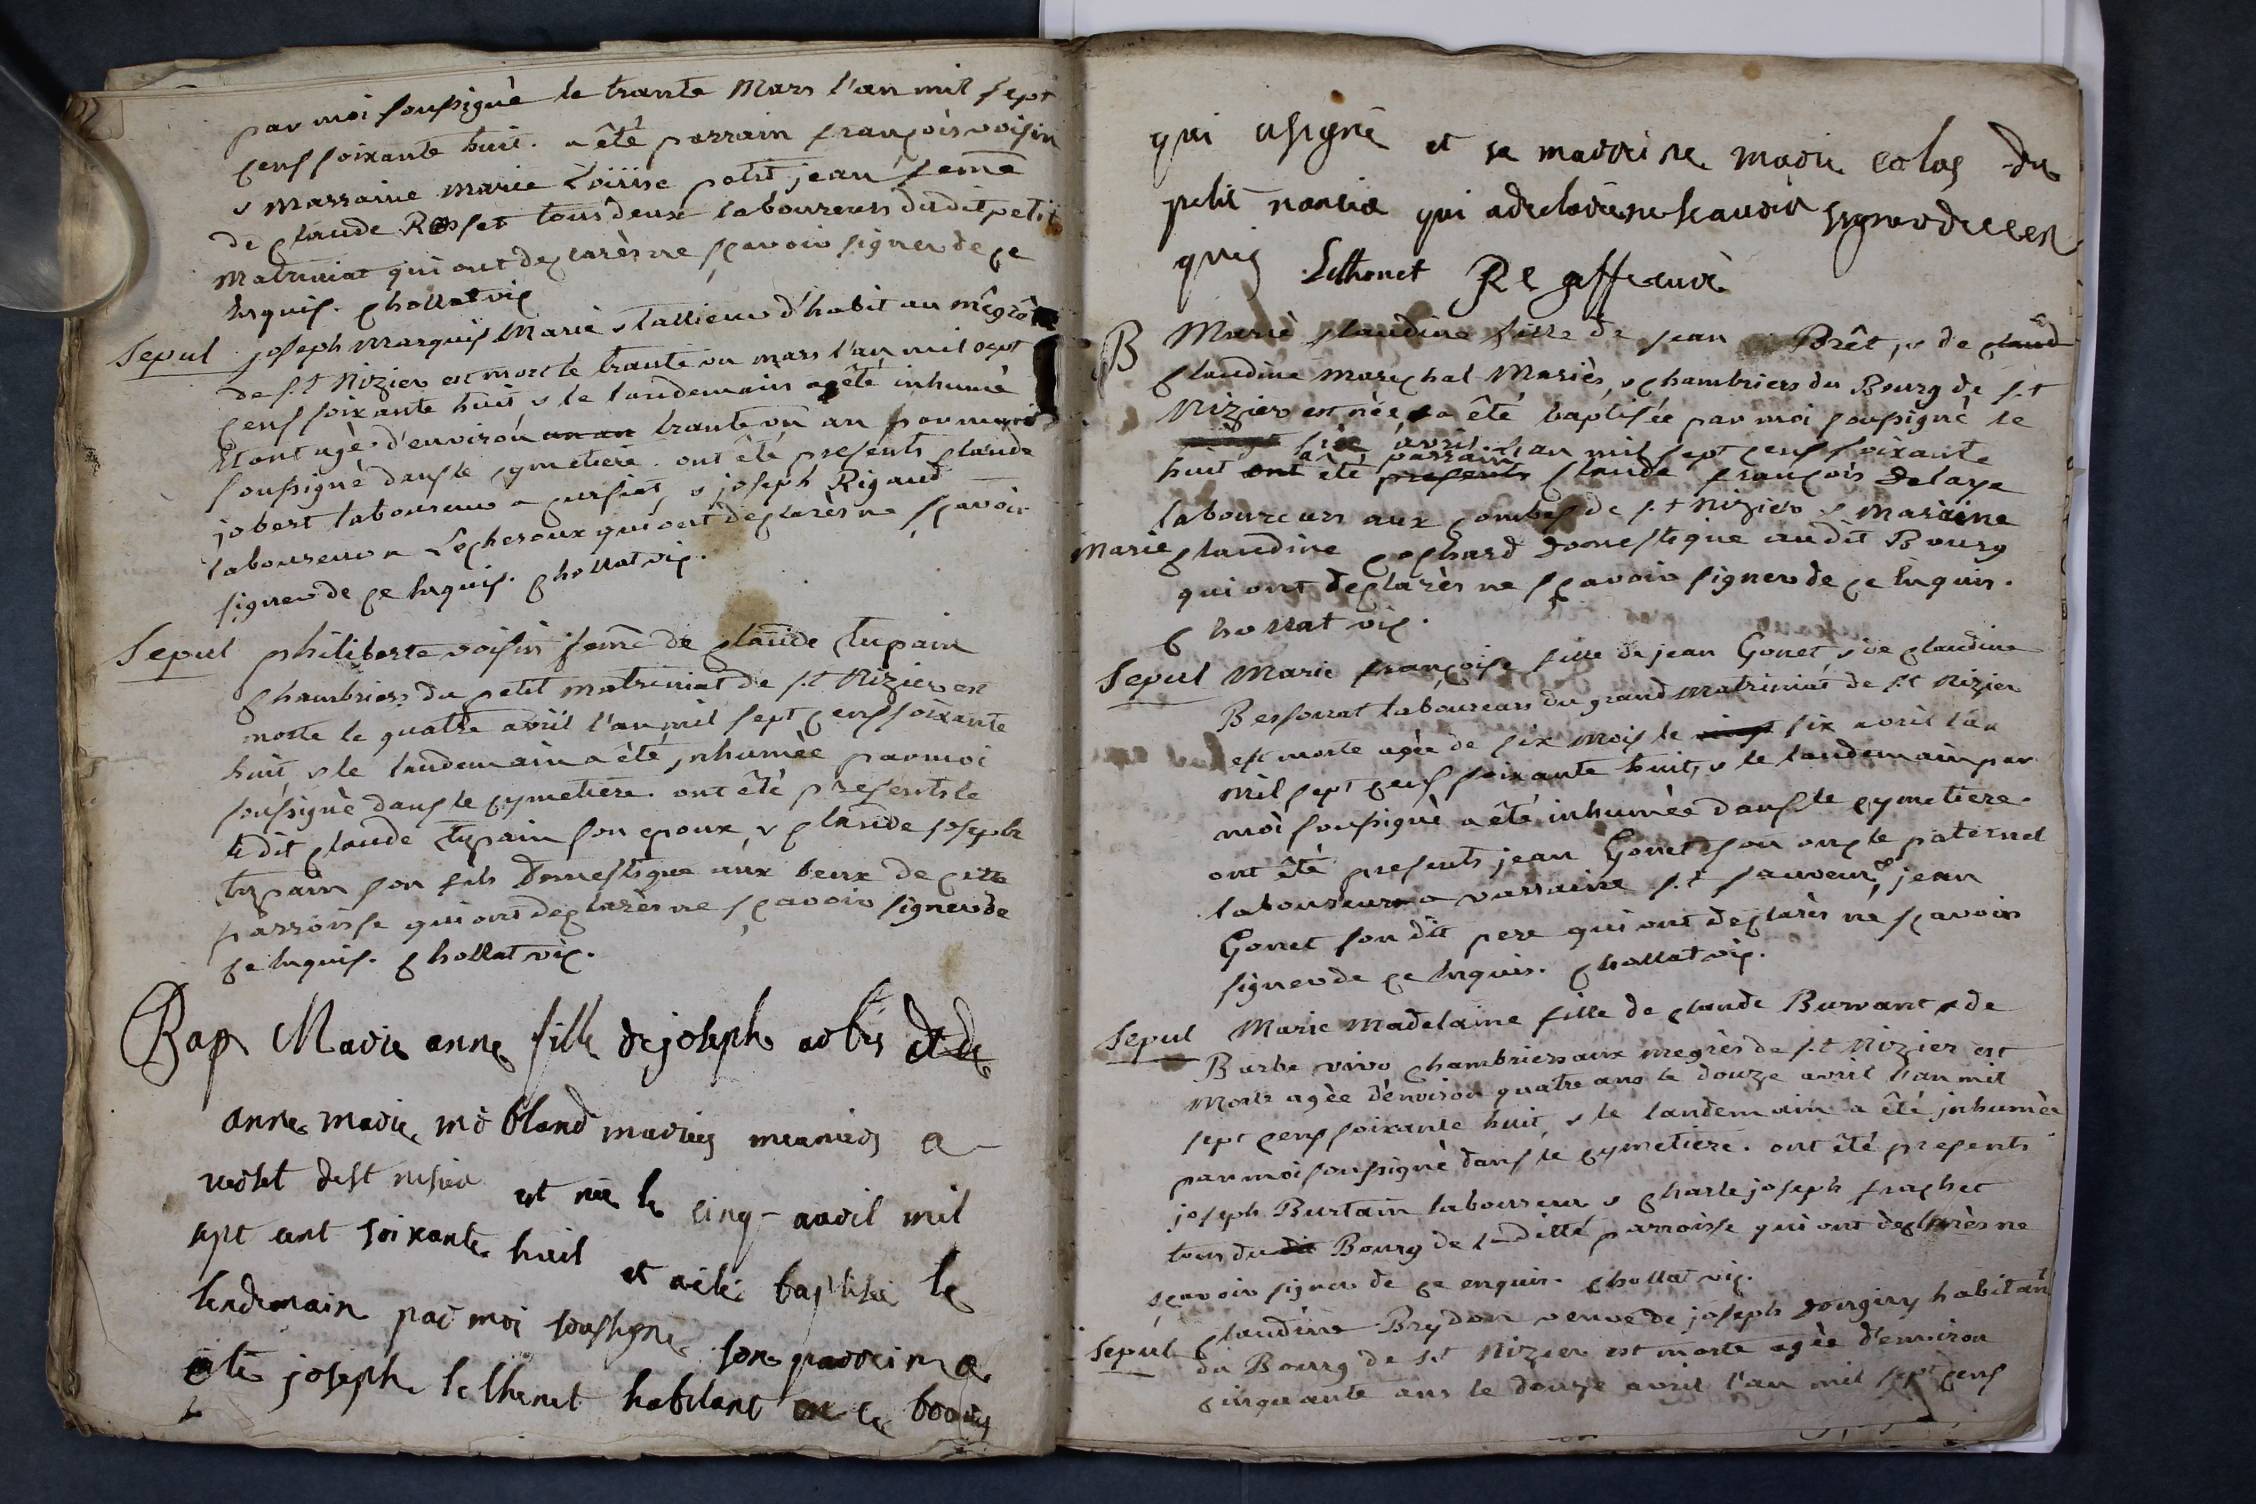 par moi soussigné le trante Mars l'an mil sept
cens soixante huit. a été parrain françois voisin
& marraine marie Loüise petit jean feme
de claude Rosset tous deux laboureurs dudit petit
Matriniat qui ont declarès ne sçavoir signer de ce
enquis. chollat vic
Sepul joseph Marquis Marié & tallieur d'habit au mêgrè
de s.t Nizier est mort le trante un mars l'an mil sept
cens soixante huit & le landemain a été inhumé
Etant agé d'environ un an trante un an par moi
soussigné dans le cymetiere. ont été presents claude
jobert laboureur a curciat, & joseph Rigaud
laboureur a Locheroux qui ont declarès ne sçavoir
signer de ce enquis. chollat vic.
Sepul philiberte voisin femê de claude tupain
chambriers du petit matriniat de s.t Nizier est
morte le quatre avril l'an mil sept cens soixante
huit & le landemain a été inhumée par moi
soussigné dans le cymetiere. ont été presents le
dit claude tupain son epoux & claude joseph
tupain son fils domestique aux beux de cette
parroisse qui ont declarès ne sçavoir signer de
ce enquis. chollat vic.
Bap Marie anne fille de joseph arbis et de
anne marie mo bland mariés meuniers a
vecist de st nisier est née le cinq avril mil
sept cent soixante huil et a été baptisée le
lendemain par moi soussigné son parrein a
été joseph lelhenet habitant en ce bourg
qui a signé et sa marreine marie colas du
petit nancia qui a declarée ne scavoir signer de ce en
quis Lethonet Regaffeurè
B Marie claudine fille de jean Borêt, & de claud
claudine Marechal Mariès, & chambriers du Bourg de s.t
Nizier est née & a été baptisée par moi soussigné le
vingt six avril l'an mil sept cens soixante
huit ont a été presents parrain claude françois Delaye
laboureurs aux combes de s.t Nizier & Maraine
Marie claudine cochard domestique audit Bourg
qui ont declarès ne sçavoir signer de ce enquis.
chollat vic.
Sepul Marie françoise fille de jean Gonet & de claudine
Bessonat laboureurs du grand Matriniat de s.t Nizier
est morte agée de six mois le vingt six avril l'an
mil sept cens soixante huit, & le landemain par
moi soussigné a été inhumée dans le cymetiere.
ont été presents jean Gonet son oncle paternel
laboureur a varraine s.t sauveur, & jean
Gonet son dit pere qui ont declarès ne sçavoir
signer de ce enquis. chollat vic.
Sepul Marie Madelaine fille de claude Burvant & de
Barbe vivo chambriers aux megrès de s.t Nizier est
Morte agèe d'environ quatre ans le douze avril l'an mil
sept cens soixante huit, & le landemain a été inhumée
par moi soussigné dans le cymetiere. ont été presents
joseph Burtain laboureur & charle joseph frachet
tous du dit Bourg de laditte parroisse qui ont declarès ne
sçavoir signer de ce enquis. chollat vic.
Sepul claudine Brydon veuve de joseph Gorgiry habitant
du Bourg de s.t Nizier est morte agèe d'environ
cinquante ans le douze avril l'an mil sept cens